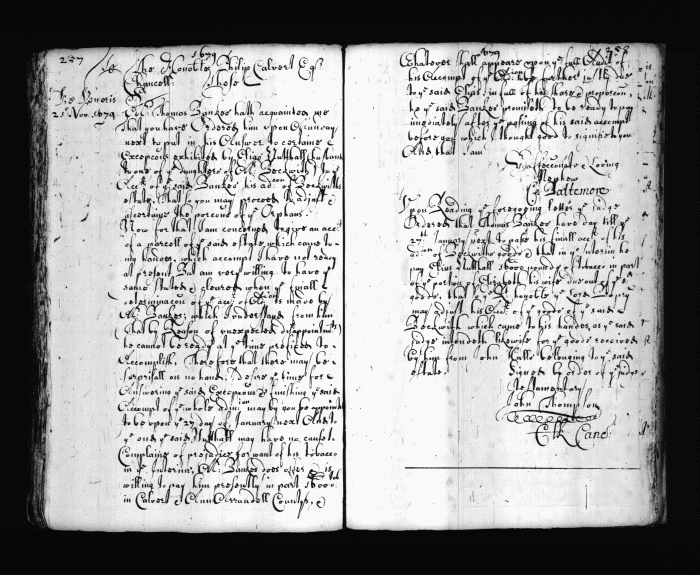 237
1679
The Honoble Philip Calvert Esqr
Chancellr These
Die Veneris
21o Nov. 1679
Sr Mr Thomas Bankes hath acquainted me
that you have Ordered him upon
next to put in his Answer to certaine
Excepcons exhibited by Elias Nutthall husband
to one of ye daughters of Mr Beckwith to ye
Acct of ye said Bankes his admcon of Beckwiths
estate, that so you may proceed to adjust &
ascertaine the porcons of ye Orphans.
Now for that I am concerned to give an acct
of a parcell of ye said estate which came to
my hands, which accompt I have not ready
at present But am very willing to have ye
same stated & cleared when ye small
determinacon of ye acct of is made by
Mr Bankes; which I understand from him
that by Reason of unexpected disappointmts
he cannot be ready at ye time prefixed to
Accomplish. Therefore that there may be no
surprisall on no hand, I desire ye time for
Answering ye said Excepcons & finishing ye said
Accompt of ye whole admcon may by you be appointed
to be upon ye 27 day of January next And to
ye end ye said Nutthall may have no cause to
Complaine of prejudice for want of his tobacco
in ye Interim, Mr Bankes does offer & is
willing to pay him presently in part 16000:
in Calvert & Ann Arrundell Countys, &
1679
238
Whatever shall appeare upon ye full Audit of
his Accompt of ye admcon further justly due
to ye said Elias, in all of his share & proporcon
he ye said Bankes promiseth to be ready to pay
imediately after ye passing of his said accompt
before you which I thought good to signifie to you
And that I am
Yor affectionate & Loving
Nephew
C: Baltemore
Upon Reading ye foregoing Letter ye Judge
Ordered that Thomas Bankes have day till ye
27. January next to passe his finall acct of his
admcon of Beckwiths goods & that in ye Interim he
pay Elias Nutthall 16000 pounds of tobacco in part
of ye porcon of Elizabeth his wife due out of ye sd
goods, that ye Honoble ye Lord Propry
may adjust his Acct of ye goods of ye said
Beckwith which came to his hands, as ye said
Judge intendeth likewise for ye goods received
by him from John Halls belonging to ye said
estate.
Signed by order of ye Judge
Testamentary
John Thompson
Clk Canc: